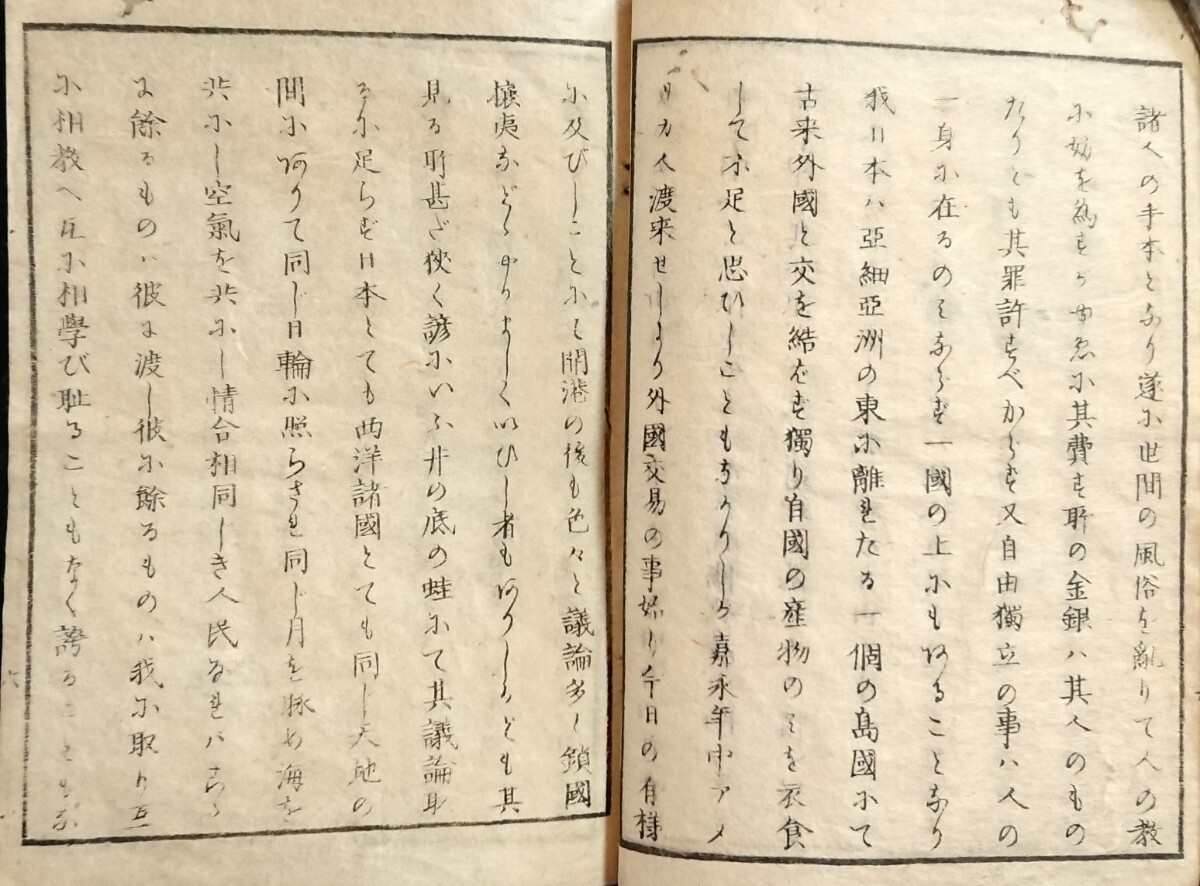 諸人の手本となり遂に世間の風俗を亂りて人の教
に妨を為すがゆゑに其費す所の金銀ハ其人のもの
たりとも其罪許すべからず又自由獨立の事ハ人の
一身に在るのみならず一國の上にもあることなり
我日本ハ亞細亞洲の東に離れたる一個の島國にて
古来外國と交を結ばず獨り自國の産物のみを衣食
して不足と思ひしこともなかりしが嘉永年中アメ
リカ人渡来せしより外國交易の事始り今日の有様
に及びしことにて開港の後も色々と議論多く鎖國
攘夷などゝやかましくいひし者もありしかども其
見る所甚だ狹く諺にいふ井の底の蛙にて其議論取
るに足らず日本とても西洋諸國とても同し天地の
間にありて同じ日輪に照らされ同じ月を眺め海を
共にし空氣を共にし情合相同しき人民なれバこゝ
に餘るものハ彼に渡し彼に餘るものハ我に取り互
に相教へ互に相學び耻ることもなく誇ることもな